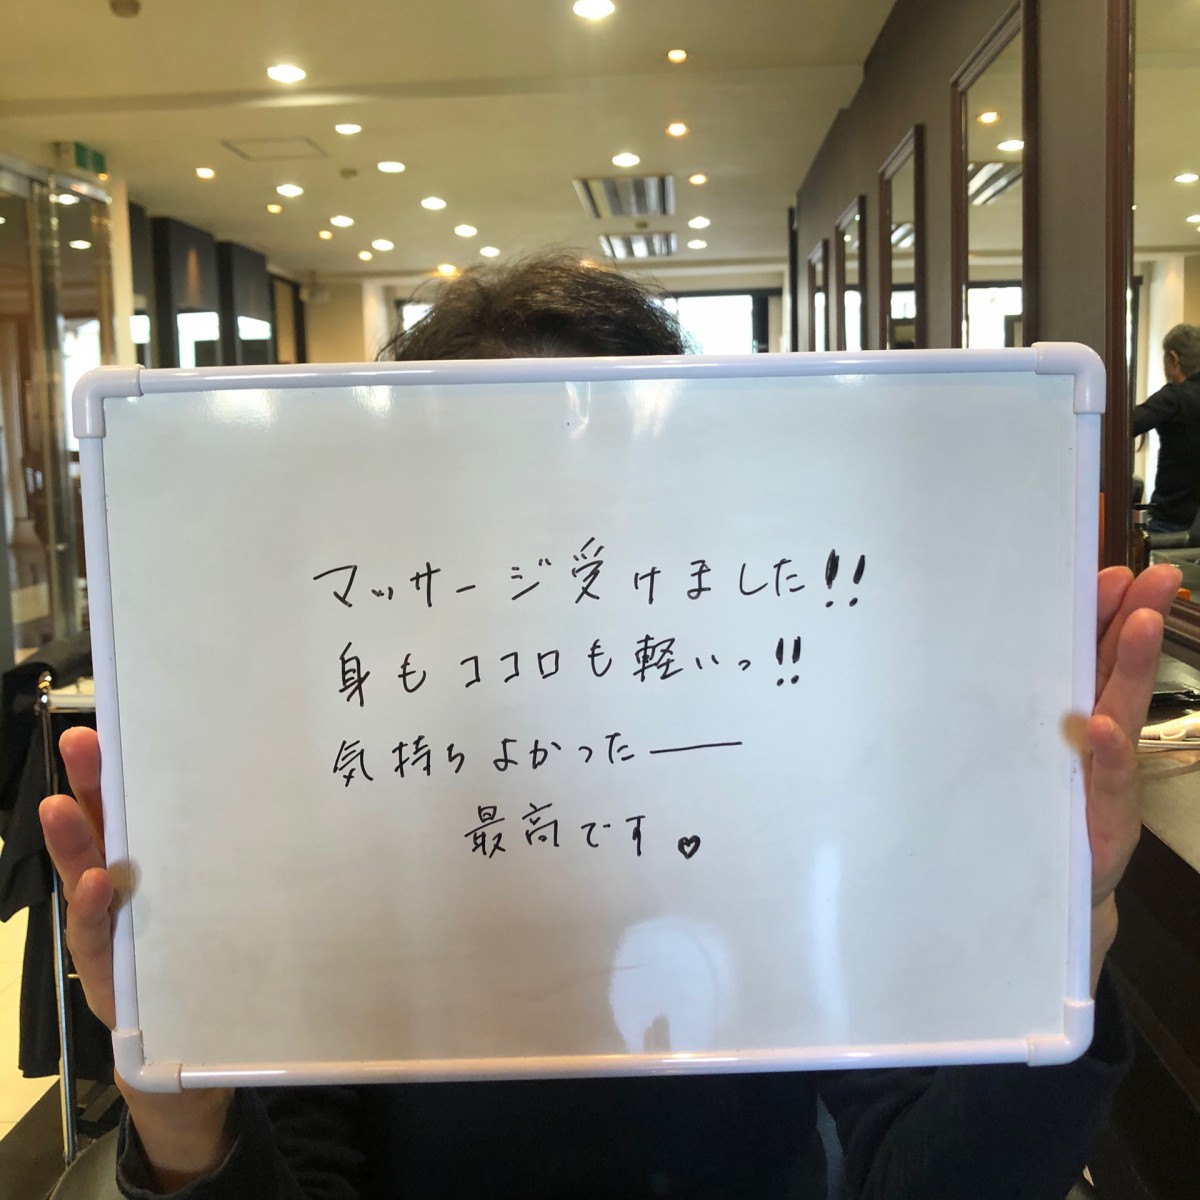 マッサージ受けました!!
身もココロも軽いっ!!
気持ちよかったー
最高です♥